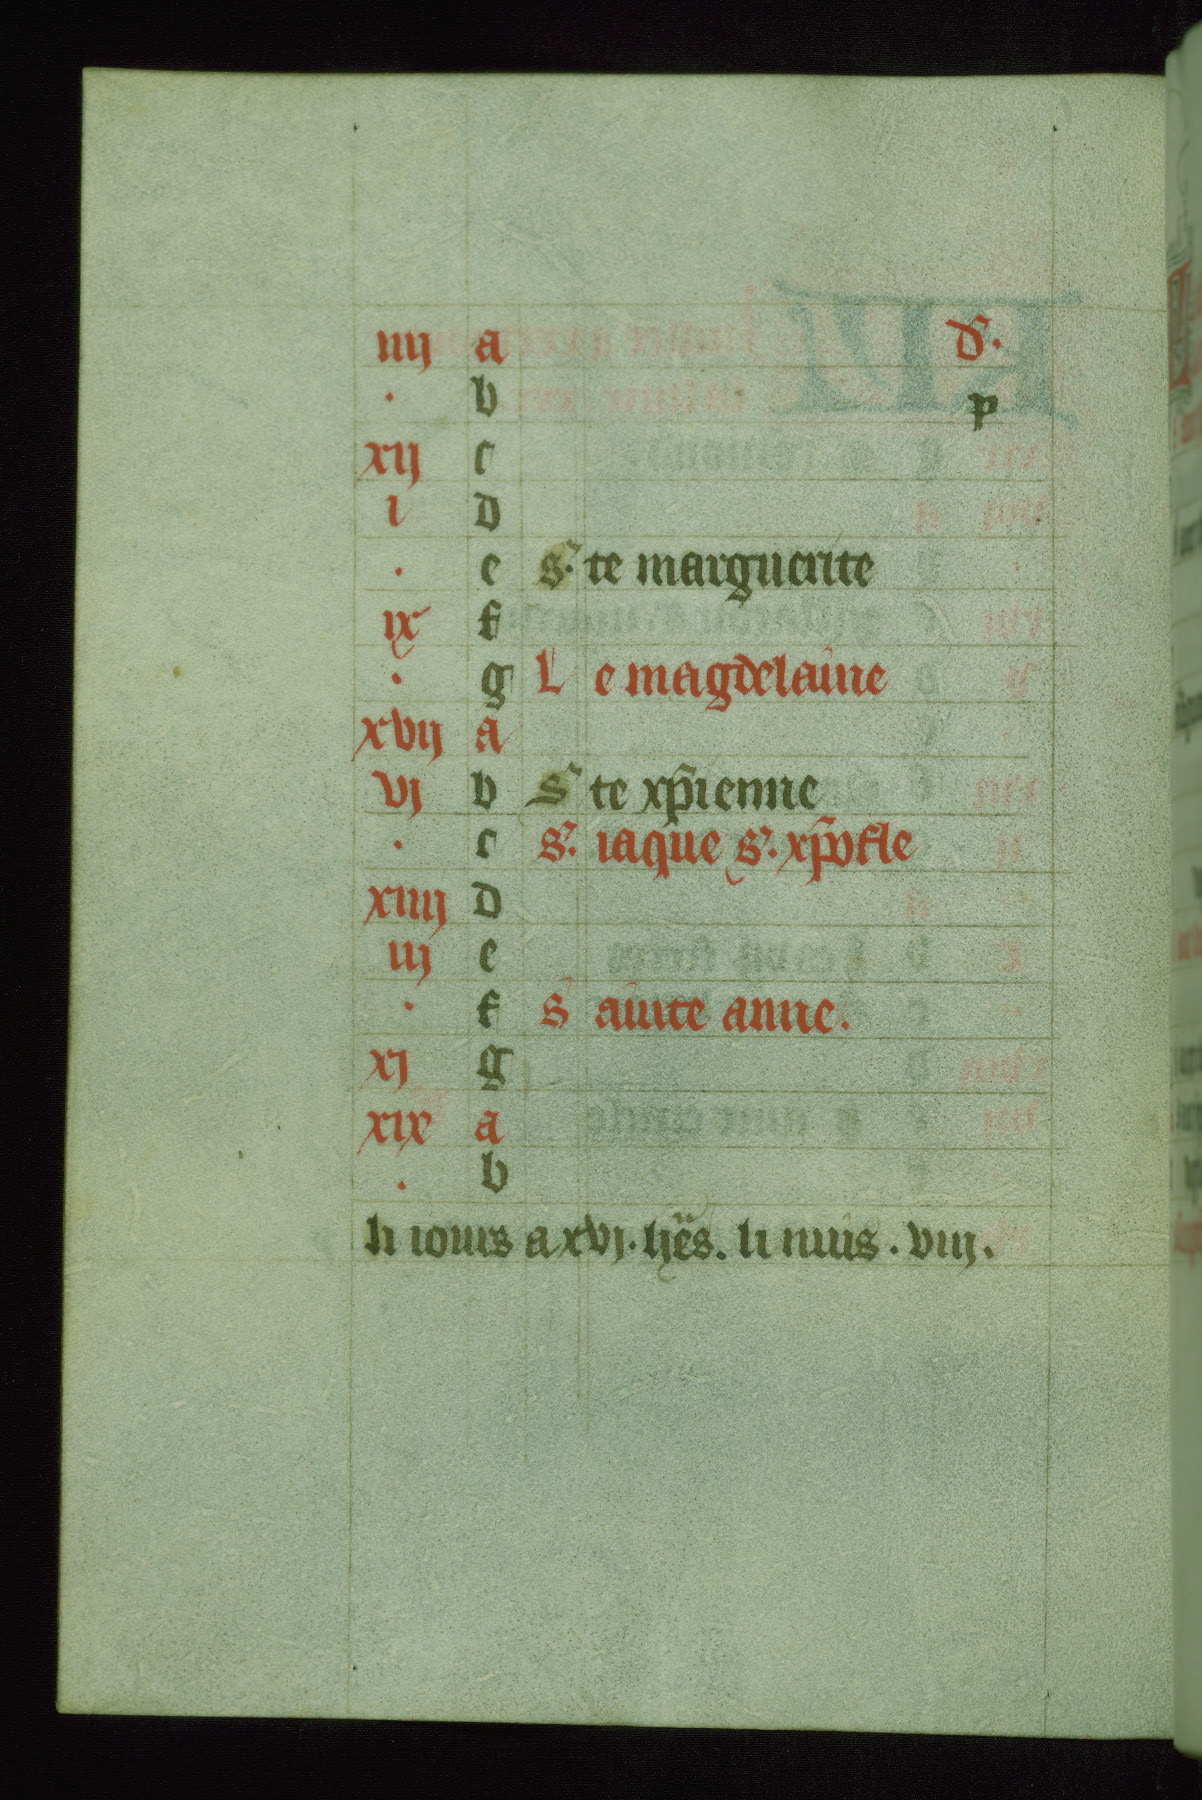 iiij a d.
. b p
xij c
i d
. e s. te marguerite
ix f
. g L e magdelaine
xvij a
vj b S te xp̄ienne
. c s. iaque s. xp̄ofle
xiiij d
iij e
. f S ainte anne.
xj g
xix a
. b
li iours a xvj. hēs. li nuis . viij.